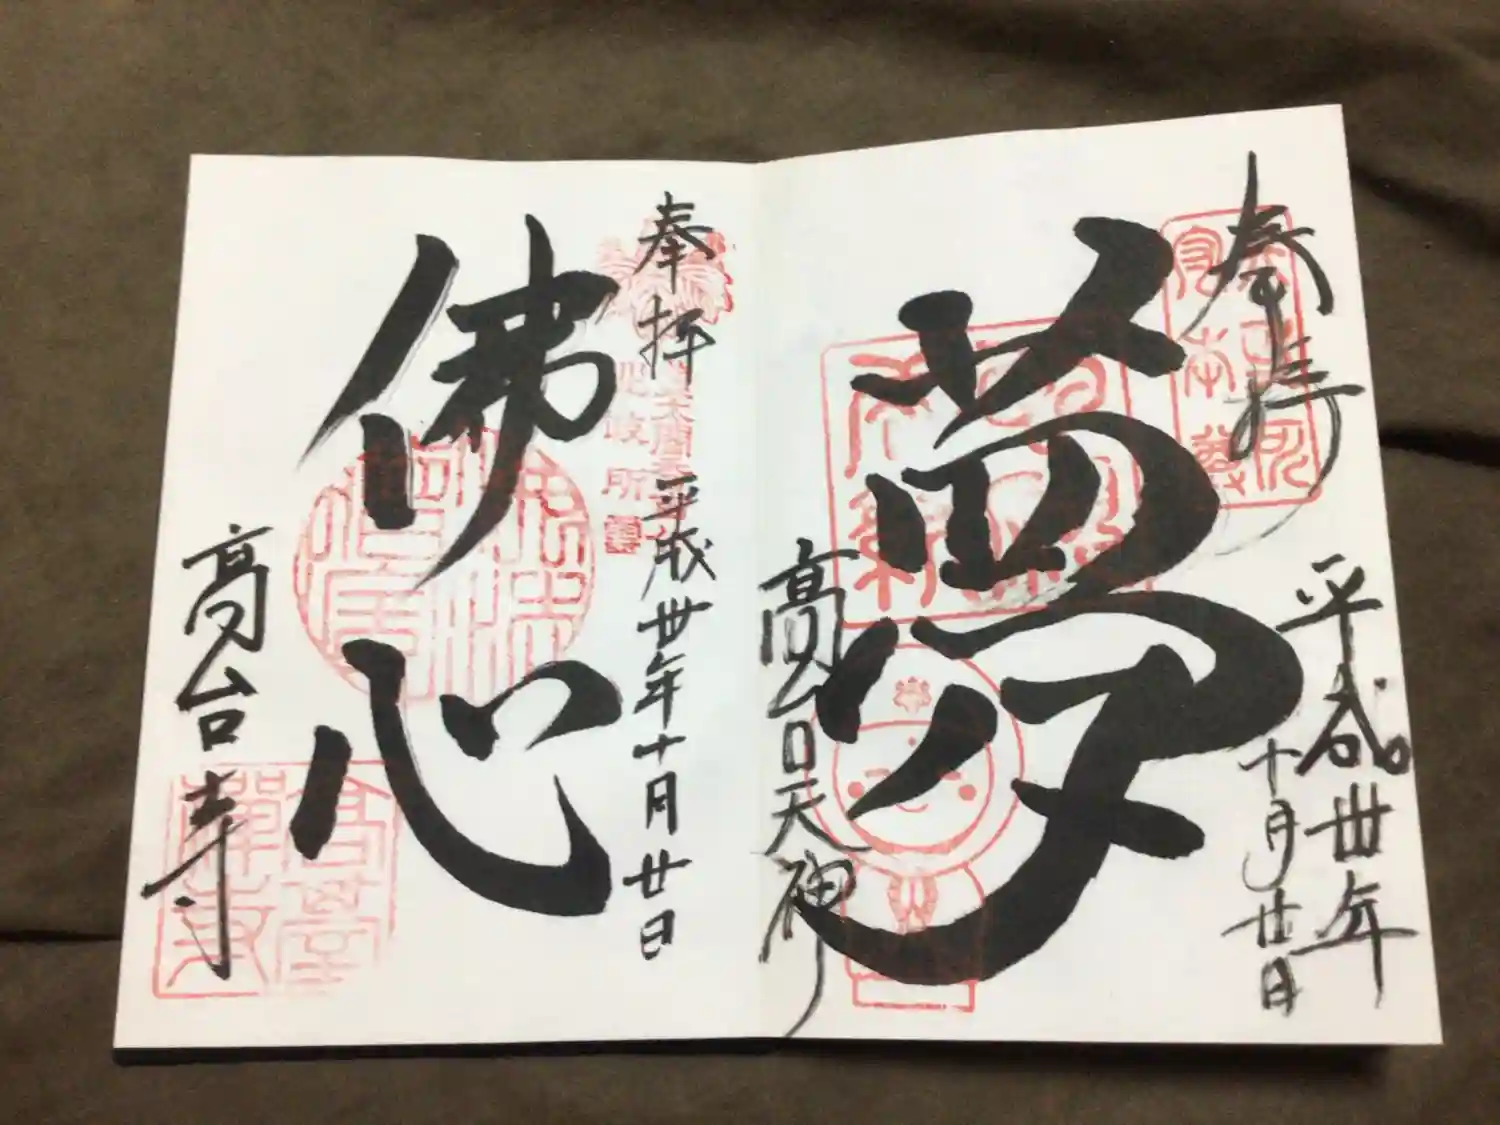 奉拝
平成卅年
十月廿日
夢
高台天神
奉拝
平成卅年十月廿日
佛心
高台寺